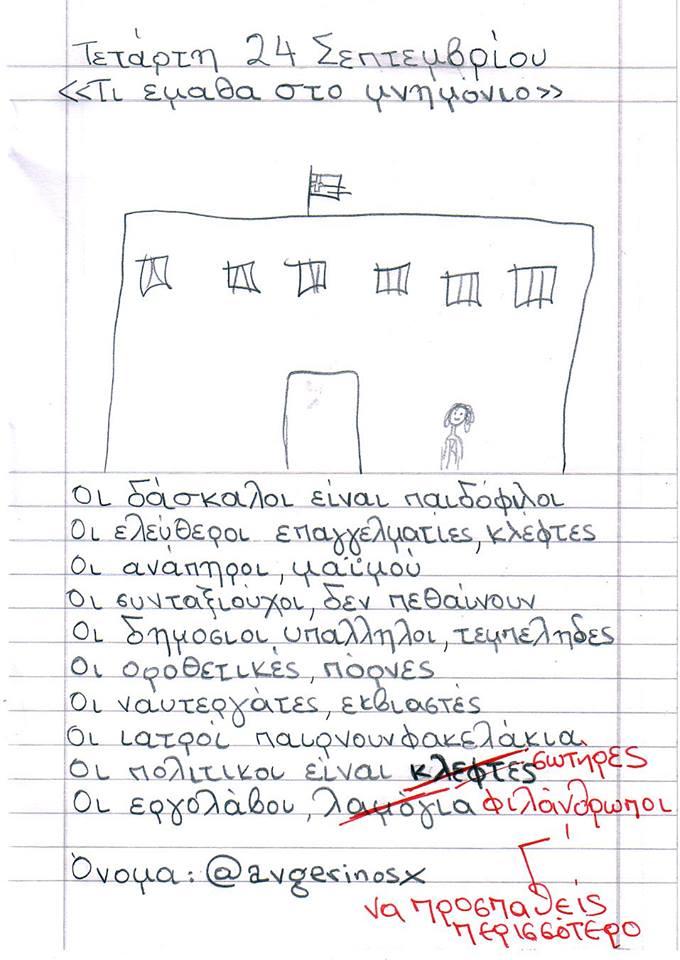 Τετάρτη 24 Σεπτεμβρίου
<<Τι εμαθα στο μνημόνιο>>
Οι δάσκαλοι είναι παιδόφιλοι
Οι ελεύθεροι επαγγελματίες, κλέφτες
Οι ανάπηροι, μαϊμού
Οι συνταξιούχοι, δεν πεθαίνουν
Οι δημοσιοι υπαλληλοι, τεμπεληδες
Οι οροθετικές, πόρνες
Οι ναυτεργάτες, εκβιαστές
Οι ιατροί παιρνουν φακελάκια
Οι πολιτικοι είναι κλεφτες σωτηρες
Οι εργολάβοι, λαμόγια φιλάνθρωποι
Όνομα: @avgerinosx
να προσπαθείς
περισσότερο